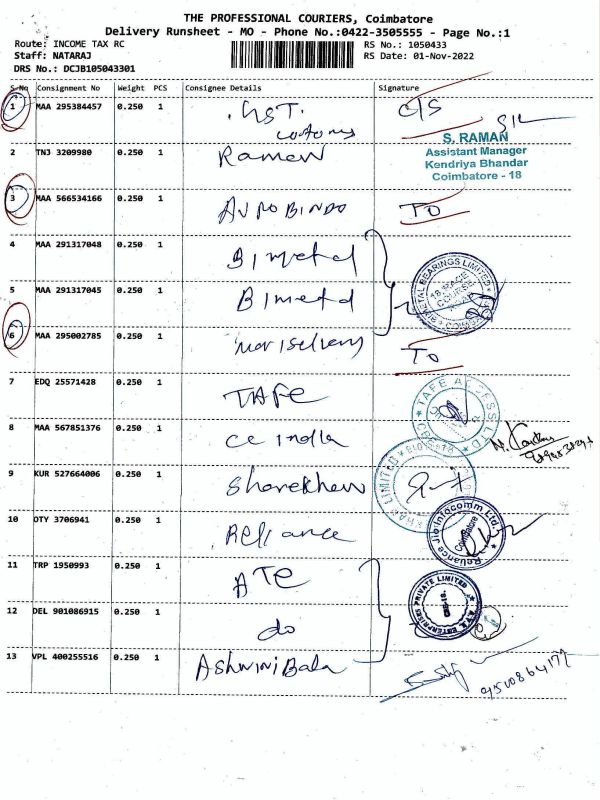 THE PROFESSIONAL COURIERS, Coimbatore
Delivery Runsheet - MO - Phone No.:0422-3505555 - Page No.:1
Route: INCOME TAX RC
RS No.: 1050433
Staff: NATARAJ
RS Date: 01-Nov-2022
DRS No.: DCJB105043301
S.No Consignment No Weight PCS Consignee Details Signature
1 MAA 295384457 0.250 1 GST. C/S
customs
S. RAMAN
Assistant Manager
Kendriya Bhandar
Coimbatore - 18
2 TNJ 3209980 0.250 1 Raman
3 MAA 566534166 0.250 1 AUROBINDO TO
4 MAA 291317048 0.250 1 Bimetal
BIMETAL BEARINGS LIMITED
18 RACE COURSE
5 MAA 291317045 0.250 1 Bimetal
6 MAA 295002785 0.250 1 TO
7 EDQ 25571428 0.250 1 TAFE
TAFE ACCESS LTD
8 MAA 567851376 0.250 1 CE India
9 KUR 527664006 0.250 1 Sharekhan
KHAN LIMITED
10 OTY 3706941 0.250 1 Reliance
Reliance Jio Infocomm Ltd.
Coimbatore
11 TRP 1950993 0.250 1 ATE
A.T.E. ENTERPRISES PRIVATE LIMITED
12 DEL 901086915 0.250 1 do
13 VPL 400255516 0.250 1 Ashwini Bala